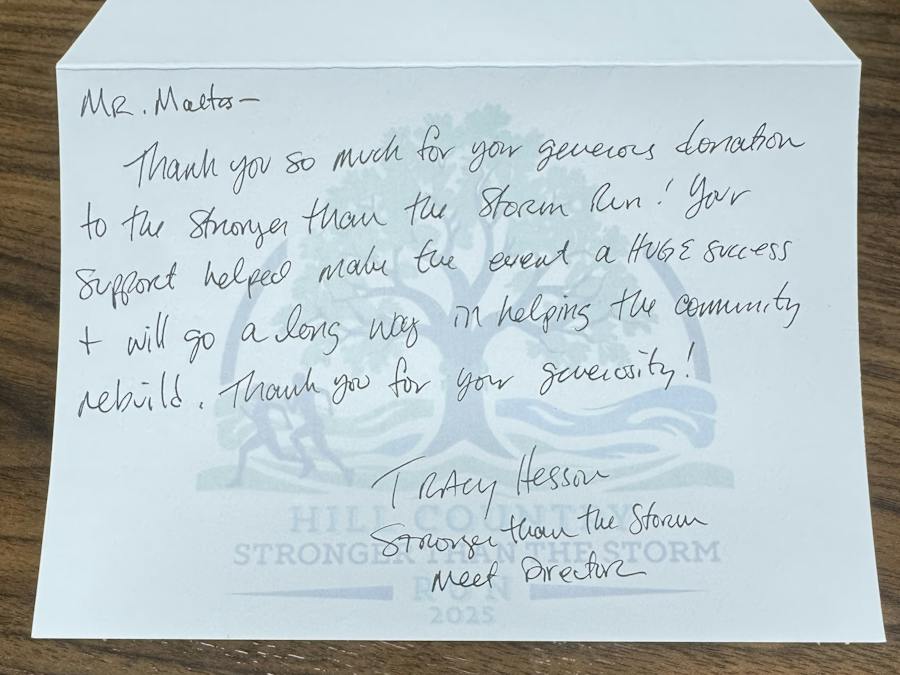 Mr. Maltos –
Thank you so much for your generous donation
to the Stronger than the Storm Run! Your
support helped make the event a HUGE success
+ will go a long way in helping the community
rebuild. Thank you for your generosity!
Tracy Hesson
Stronger than the Storm
Meet Director
HILL COUNTRY
STRONGER THAN THE STORM
RUN
2025